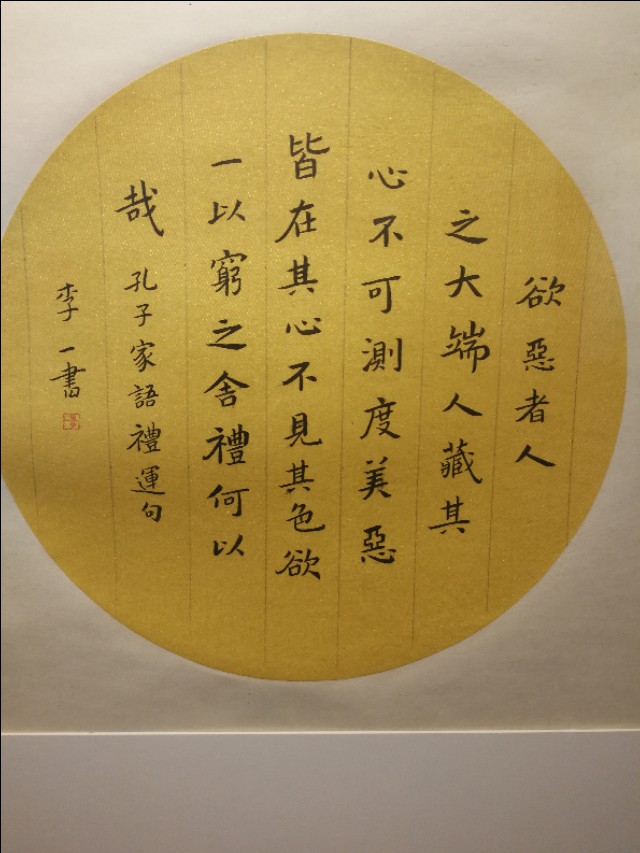 欲惡者人
之大端人藏其
心不可測度美惡
皆在其心不見其色欲
一以窮之舍禮何以
哉孔子家語禮運句
李一書